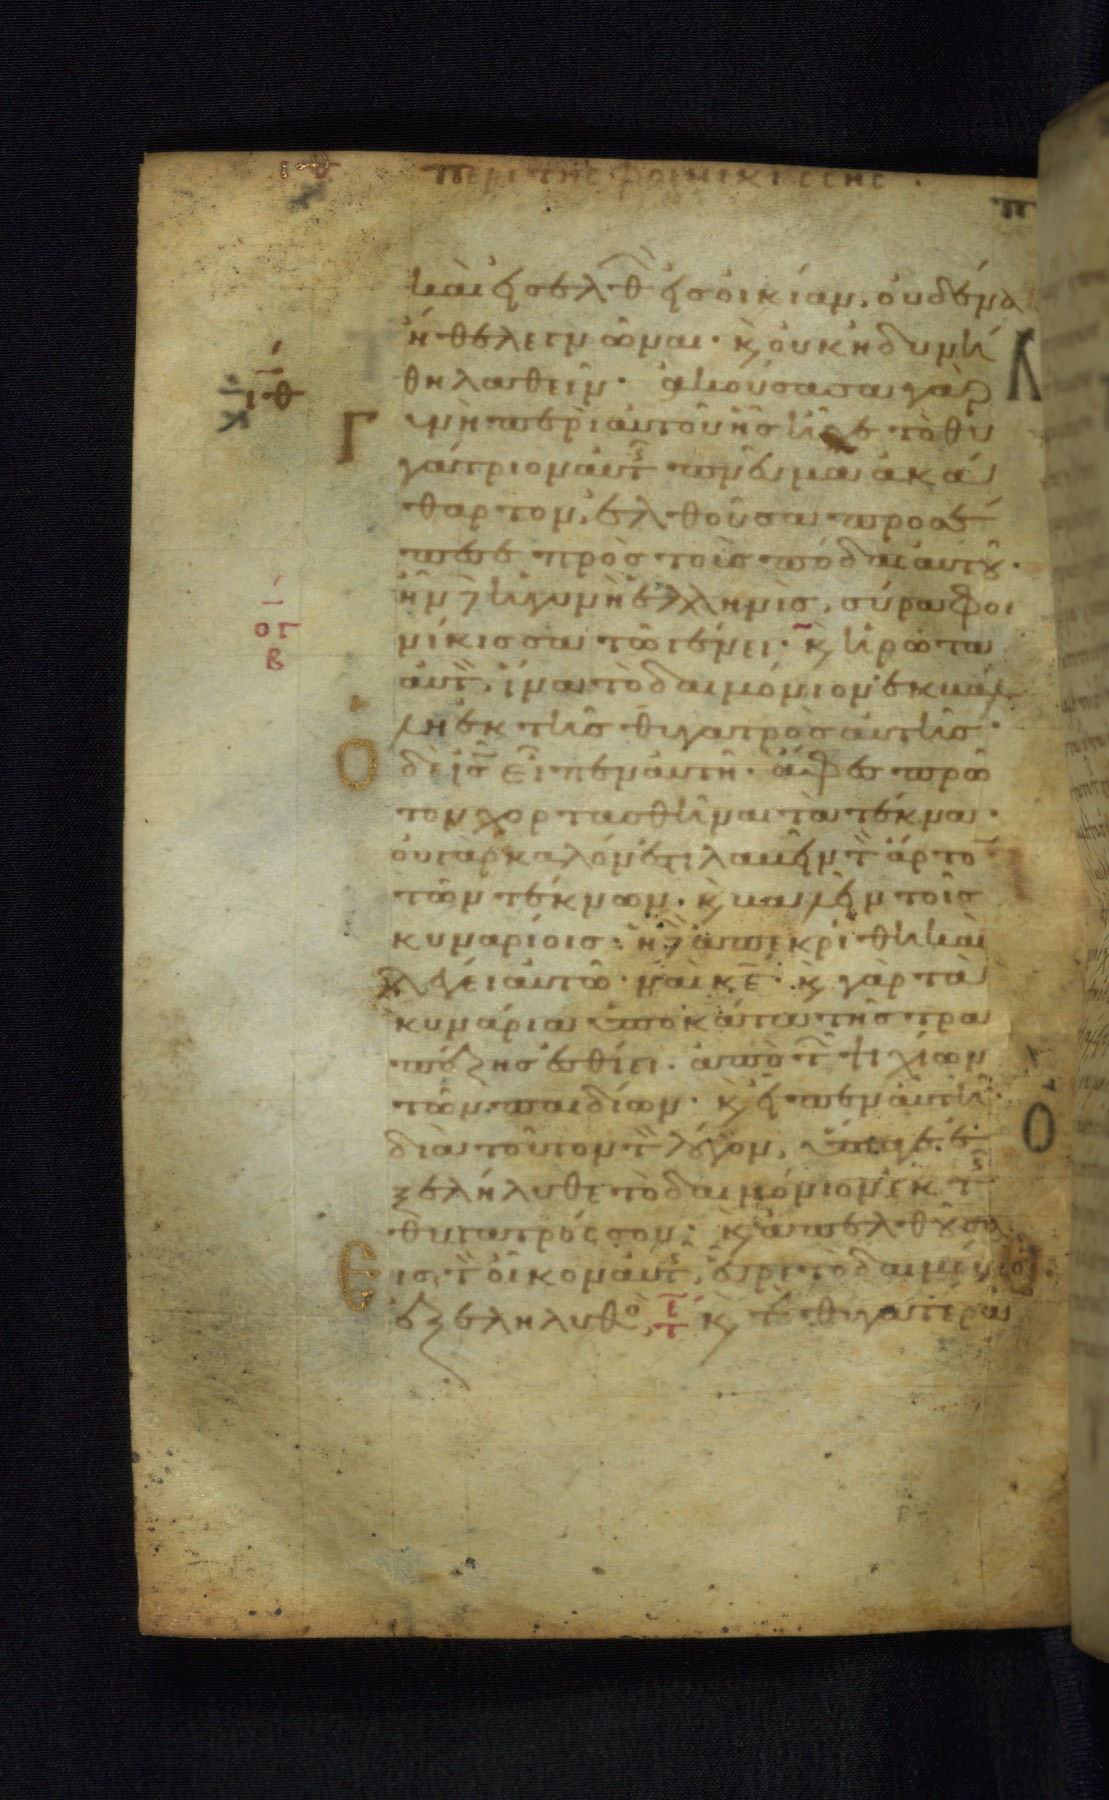 ιθ περι της φοινικισσης.
καὶ εἰσελθ̀ εἰς οἰκίαν, οὐδένα
ἤθελε γνῶναι· κ οὐκ ἠδυνή
ιθ
θη λαθεῖν· ἀκούσασα γὰρ
Γυνὴ περὶ αὐτοῦ ἧς εἶχε τὸ θυ
γάτριον αὐτ πνεῦμα ἀκά
θαρτον, ἐλθοῦσα προσέ
πεσε πρὸς τοὺς πόδας αὐτȣ·
ἦν δὲ ἡ γυνὴ ἑλληνὶς, σύρα φοι
νίκισσα τῶ γένει· κ ἠρώτα
αὐτ, ἵνα τὸ δαιμόνιον ἐκβάλ
λη ἐκ τῆς θυγατρὸς αὐτῆς·
Ὁ δὲ ις εἶπεν αὐτῆ· ἄφες πρῶ
τον χορτασθῆναι τὰ τέκνα·
οὐ γὰρ καλόν ἐστι λαβεῖν τ ἄρτο
τῶν τέκνων· κ βαλεῖν τοῖς
κυναρίοις· ἡ δὲ ἀπεκρίθη καὶ
λέγει αὐτῶ· ναὶ κε· κ γὰρ τὰ
κυνάρια ὑποκάτω τῆς τρα
πέζης ἐσθίει· ἀπὸ τ ψιχίων
τῶν παιδίων· κ εἶπεν αὐτῆ·
διὰ τοῦτον τ λόγον, ὕπαγε· ἐ
ξελήλυθε τὸ δαιμόνιον ἐκ τ
θυγατρός σου· κ ἀπελθȣσα
Εἰς τ οἶκον αὐτ, εὗρε τὸ δαιμόνιον
ἐξεληλυθὸ, κ τ θυγατέρα